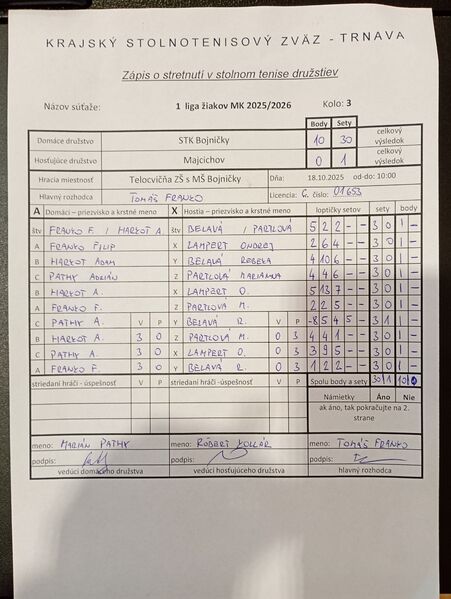 KRAJSKÝ STOLNOTENISOVÝ ZVÄZ - TRNAVA
Zápis o stretnutí v stolnom tenise družstiev
Názov súťaže: 1 liga žiakov MK 2025/2026 Kolo: 3
Body Sety
Domáce družstvo STK Bojničky 10 30 celkový výsledok
Hosťujúce družstvo Majcichov 0 1 celkový výsledok
Hracia miestnosť Telocvičňa ZŠ s MŠ Bojničky Dňa: 18.10.2025 od-do: 10:00
Hlavný rozhodca TOMÁŠ FRANKO Licencia č. číslo: 01653
A Domáci – priezvisko a krstné meno X Hostia – priezvisko a krstné meno loptičky setov sety body
štv FRANKO F. / HARKOT A. štv BELAVÁ / PARTLOVÁ 5 2 2 - - 3 0 1 -
A FRANKO FILIP X LAMPERT ONDREJ 2 6 4 - - 3 0 1 -
B HARKOT ADAM Y BELAVÁ REBEKA 4 10 6 - - 3 0 1 -
C PATHY ADRIÁN Z PARTLOVÁ MARIANNA 4 4 6 - - 3 0 1 -
B HARKOT A. X LAMPERT O. 5 13 7 - - 3 0 1 -
A FRANKO F. Z PARTLOVÁ M. 2 2 5 - - 3 0 1 -
C PATHY A. V P Y BELAVÁ R. V P -8 5 4 5 - 3 1 1 -
B HARKOT A. 3 0 Z PARTLOVÁ M. 0 3 4 4 1 - - 3 0 1 -
C PATHY A. 3 0 X LAMPERT O. 0 3 3 9 5 - - 3 0 1 -
A FRANKO F. 3 0 Y BELAVÁ R. 0 3 1 2 2 - - 3 0 1 -
striedaní hráči - úspešnosť V P striedaní hráči -úspešnosť V P Spolu body a sety 30 1 10 0
Námietky Áno Nie
ak áno, tak pokračujte na 2.
strane
meno: MARIÁN PATHY meno: RÓBERT KOLLÁR meno: TOMÁŠ FRANKO
podpis: podpis: podpis:
vedúci domáceho družstva vedúci hosťujúceho družstva hlavný rozhodca